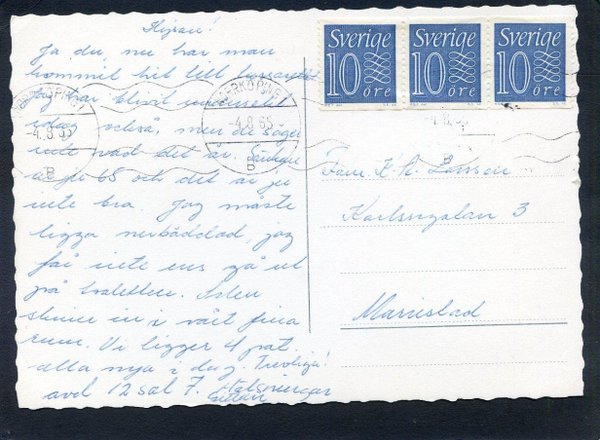 Hejsan!
Ja du nu har man
kommit hit till lasarettet
Jag har blivit undersökt
idag också, men de säger
inte vad det är. Sänkan
är ju 68 och det är ju
inte bra. Jag måste
ligga nerbäddad, jag
får inte ens gå ut
på toaletten. Solen
skiner in i vårt fina
rum. Vi ligger 4 pat.
alla nya i dag. Trevliga!
avd 12 sal 7.
NORRKÖPING 1
-4.8.65
B
NORRKÖPING 1
-4.8.65
B
Sverige
10
öre
Sverige
10
öre
Sverige
10
öre
Fam. K. A. Larsson
Karlsrogatan 3
Mariestad